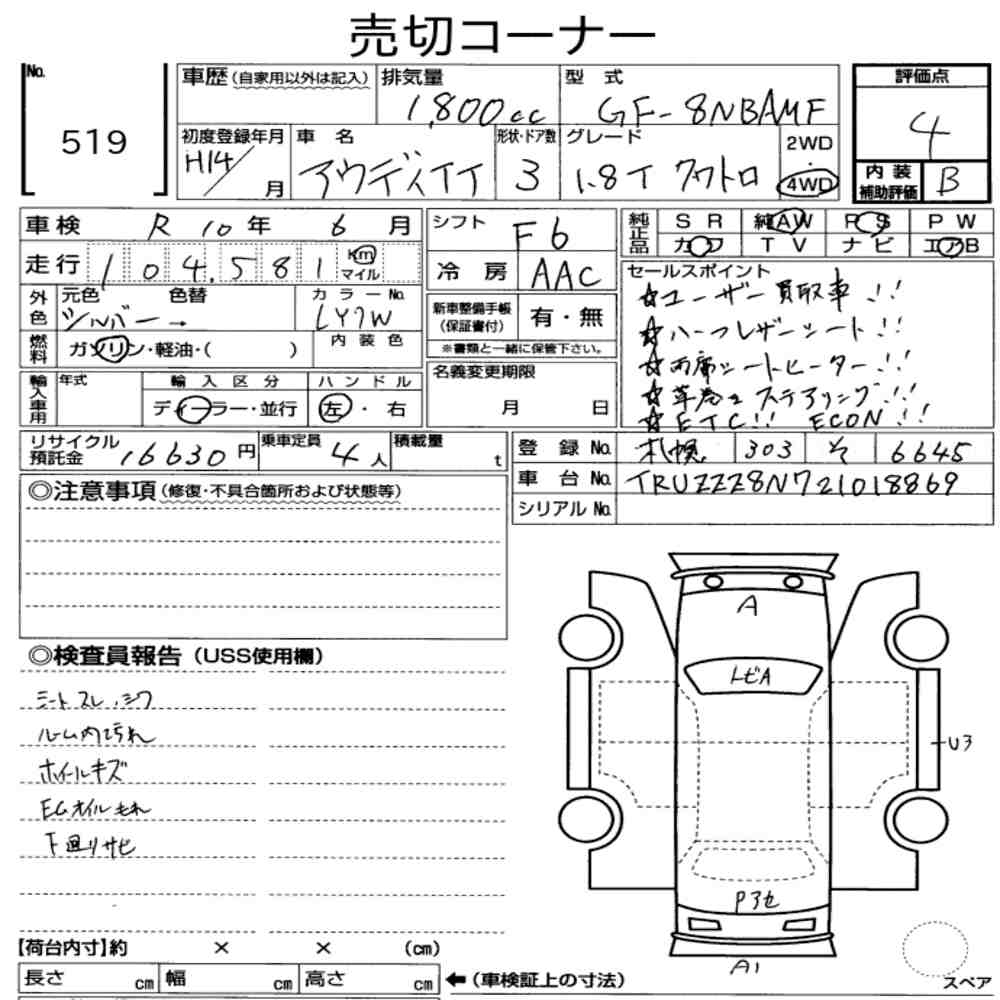 売切コーナー
No.
519
車歴 (自家用以外は記入)
排気量
1,800cc
型 式
GF-8NBAMF
評価点
4
初度登録年月
H14/ 月
車 名
アウディTT
形状・ドア数
3
グレード
1.8T クワトロ
2WD
・
4WD
内 装
補助評価
B
車検 R 10 年 6 月
走行 104,581 Km マイル
シフト F6
冷 房 AAC
純正品 SR 純AW PS PW
カワ TV ナビ エアB
外色
元色 色替
シルバー →
カラーNo.
LY7W
燃料
ガソリン・軽油・( )
内 装 色
新車整備手帳
(保証書付)
有・無
※書類と一緒に保管下さい。
セールスポイント
☆ユーザー買取車!!
☆ハーフレザーシート!!
☆両席シートヒーター!!
☆革巻きステアリング!!
☆ETC!! ECON!!
輸入車用
年式
輸 入 区 分
ディーラー・並行
ハ ン ド ル
左・右
名義変更期限
月 日
リサイクル
預託金
16630円
乗車定員
4人
積載量
t
登 録 No. 札幌 303 そ 6645
車 台 No. TRUZZZ8N721018869
シリアル No.
◎注意事項 (修復・不具合箇所および状態等)
◎検査員報告 (USS使用欄)
シートスレ、シワ
ルーム内汚れ
ホイールキズ
EGオイルもれ
下廻りサビ
A
トビA
U3
Pアセ
A1
スペア
【荷台内寸】約 × × (cm)
長さ cm 幅 cm 高さ cm ←(車検証上の寸法)